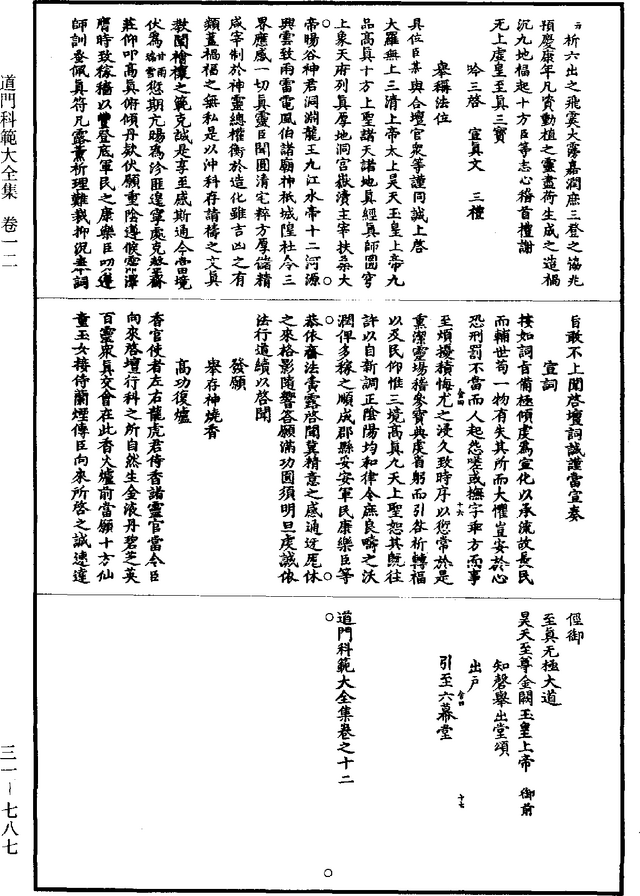 祈六出之飛霙大霈嘉潤庶三登之協兆
預慶康年凡資動植之靈盡荷生成之造禍
沉九地福起十方臣等志心稽首禮謝
无上虛皇至真三寶
吟三啓 宣真文 三禮
舉稱法位
具位臣某與合壇官衆等謹同誠上啓
大羅無上三清上帝太上昊天玉皇上帝九
品高真十方上聖諸天諸地真經真師圓穹
上象天府列真厚地洞宮嶽瀆主宰扶桑大
帝暘谷神君洞淵龍王九江水帝十二河源
興雲致雨雷電風伯諸廟神祇城隍社令三
界應感一切真靈臣聞圓清宅粹方厚儲精
咸宰制於神靈總權衡於造化雖吉凶之有
類蓋禍福之無私是以沖科存請禱之文真
教闡禬禳之範克誠是享至感斯通今當境
伏為甘雨愆期亢暘為沴匪遑寧處克罄齋
莊仰叩高真俯傾丹欵伏願重陰邊候霈澤
膺時致稼穡以豐登底軍民之康樂臣叨遵
師訓叅佩真符凡露薰祈理難裁抑沉奉詞
旨敢不上聞啓壇詞誠謹當宣奏
宣詞
按如詞旨備極傾虔為宣化以承流故長民
而輔世苟一物有失其所而大懼豈安於心
恐刑罰不當而人起怨嗟或撫字乖方而事
至煩擾積悔尤之浸久致時序以愆常於是
熏潔靈場稽叅寶典虔首躬而引咎祈轉福
以及民仰惟三境高真九天上聖恕其既往
許以自新調正陰陽均和律令庶良疇之沃
潤俾多稼之順成郡縣妥安軍民康樂臣等
恭依齋法賁露啓聞冀精意之感通迓厖休
之來格影隨響答願滿功圓須明旦虔誠依
法行道續以啓聞
發願
舉存神燒香
高功復爐
香官使者左右龍虎君侍香諸靈官當令臣
向來啓壇行科之所自然生金液丹碧芝英
百靈衆真交會在此香火爐前當願十方仙
童玉女接侍蘭煙傳臣向來所啓之誠速達
徑御
至真无極大道
昊天至尊金闕玉皇上帝 御前
知磬舉出堂頌
出戶
引至六幕堂
道門科範大全集卷之十二
道門科範大全集 卷一二
三一－七八七